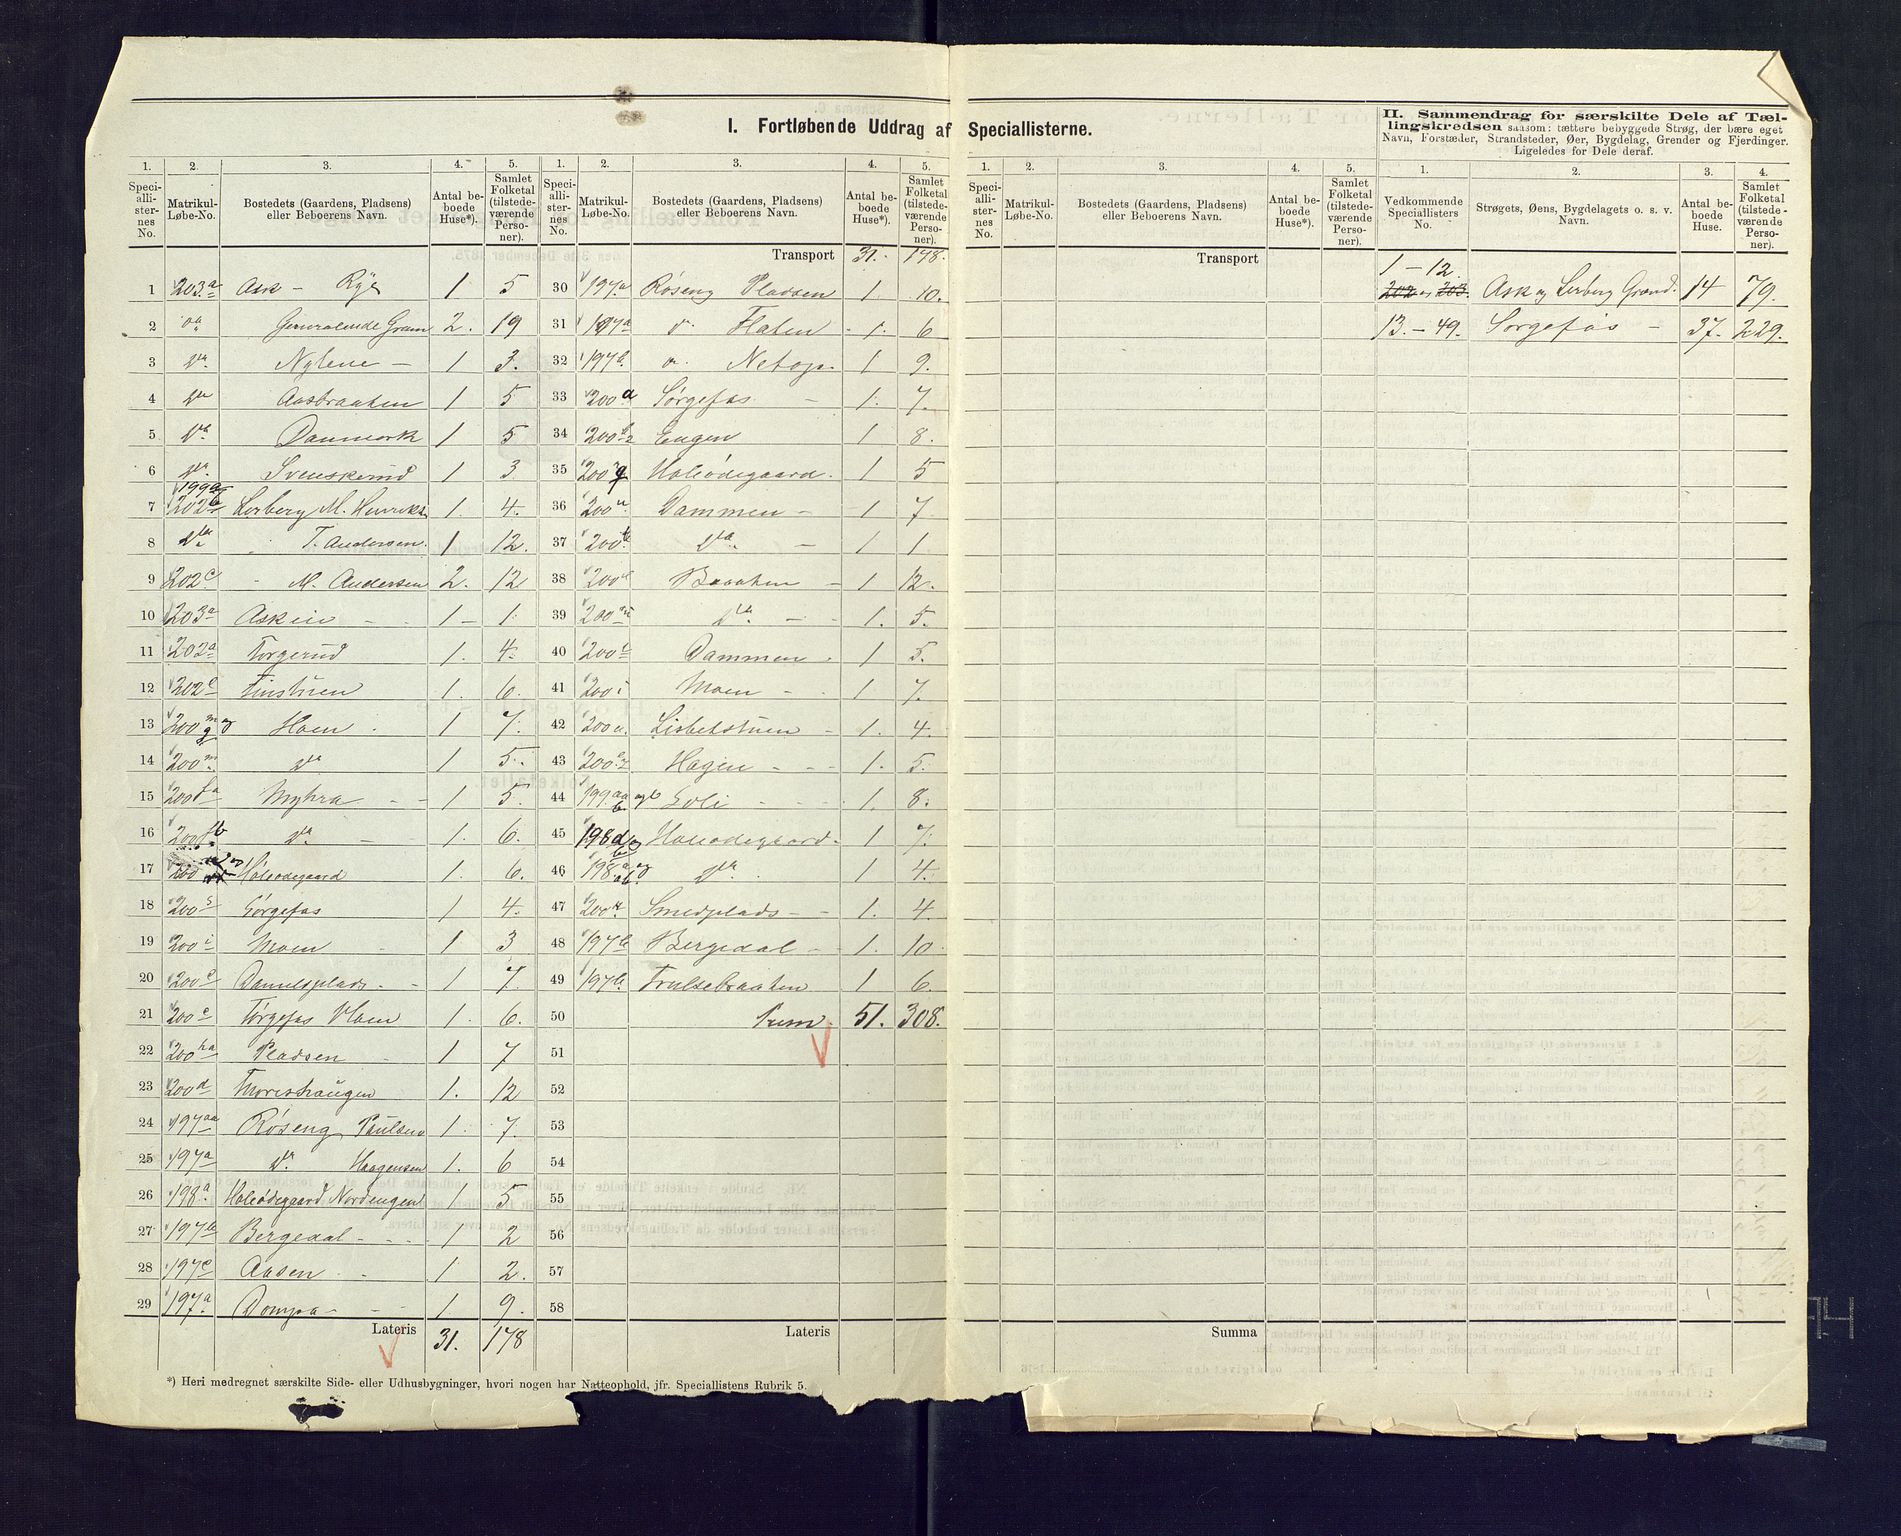 I. Fortløbende Uddrag af Speciallisterne.
II. Sammendrag for særskilte Dele af Tællingskredsen saasom: tættere bebyggede Strøg, der bære eget Navn, Forstæder, Strandsteder, Øer, Bygdelag, Grender og Fjerdinger. Ligeledes for Dele deraf.
1. 2. 3. 4. 5. 1. 2. 3. 4. 5. 1. 2. 3. 4. 5. 1. 2. 3. 4.
Speciallisternes No. Matrikul-Løbe-No. Bostedets (Gaardens, Pladsens) eller Beboerens Navn. Antal beboede Huse*). Samlet Folketal (tilstedeværende Personer).
Speciallisternes No. Matrikul-Løbe-No. Bostedets (Gaardens, Pladsens) eller Beboerens Navn. Antal beboede Huse*). Samlet Folketal (tilstedeværende Personer).
Speciallisternes No. Matrikul-Løbe-No. Bostedets (Gaardens, Pladsens) eller Beboerens Navn. Antal beboede Huse*). Samlet Folketal (tilstedeværende Personer).
Vedkommende Speciallisters No. Strøgets, Øens, Bygdelagets o. s. v. Navn. Antal beboede Huse. Samlet Folketal (tilstedeværende Personer).
1 203a Ask – Rye 1 5
2 Generalende Gram 2. 19
3 da Nylene – 1 3.
4 da Aasbraaten 1 5
5 da Danmark 1 5
6 da Svenskerud 1 3
199a
7 202b Lerberg M. Henriks. 1. 4.
8 da T. Andersen. 1 12.
9 202c M. Andersen 2. 12
10 203a Askeie 1 – 1.
11 202a Torgerud 1. 4.
12 202c Finstuen 1. 6.
13 200m og g Hoen 1 7.
14 200m da 1 5.
15 200fa Myhra – – 1 5.
16 200fb da – 1. 6.
17 200 Holeødegaard 1. 6.
18 200s Sørgefos 1 4.
19 200i Moen 1 3
20 200e Danielsplads – 1 7.
21 200e Sørgefos Moen 1. 6.
22 200ha Pladsen – 1 7
23 200d Thoreshaugen 1. 12
24 197aa Røseng Paulsen 1. 7.
25 197a da Haagensen 1. 6
26 198a Holeødegaard Nordengen 1 5
27 197b Bergedal – – 1 2
28 197c Aasen – 1 2.
29 197a Dompa – – 1. 9.
Lateris 31. 178
Transport 31. 178.
30 197a Røseng Pladsen 1. 10.
31 197a d. Flaten 1. 6
32 197b Netop 1 9.
33 200a Sørgefos – 1. 7.
34 200 Engen 1 8.
35 200 Holeødegaard. 1. 5
36 200n Dammen – 1 7
37 200 da – 1 1
38 200 Braaten – 1 12.
39 200 da – 1. 5.
40 200 Dammen 1 5.
41 200i Moen – 1 7.
42 200 Lisbetstuen – 1. 4.
43 200 Hagen – – 1. 5.
44 199aa og b Loli 1. 8.
45 198d og Holeødegaard. 1 7.
46 198a og da 1 4.
47 200 Smedplads – 1. 4.
48 197b Bergedal – 1. 10
49 197b Trulsebraaten 1 6.
50 Sum. 51. 308.
51
52
53
54
55
56
57
58
Lateris
Transport
Summa
1 – 12.
202 og 203. Ask og Lerberg Grænd. 14 79.
13. – 49. Sørgefos – 37. 229.
*) Heri medregnet særskilte Side- eller Udhusbygninger, hvori nogen har Natteophold, jfr. Speciallistens Rubrik 5.